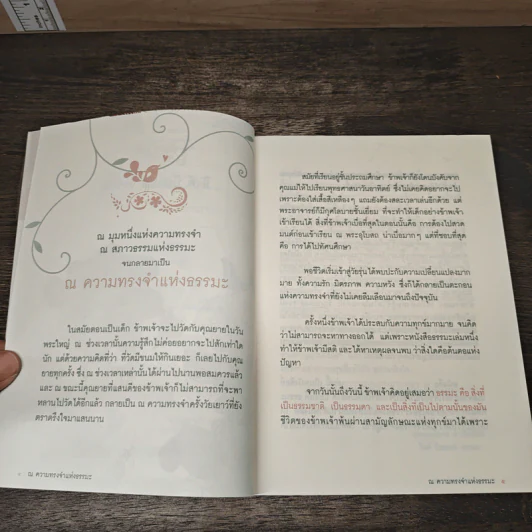 ณ มุมหนึ่งแห่งความทรงจำ
ณ สภาวธรรมแห่งธรรมะ
จนกลายมาเป็น
ณ ความทรงจำแห่งธรรมะ
ในสมัยตอนเป็นเด็ก ข้าพเจ้าจะไปวัดกับคุณยายในวัน
พระใหญ่ ณ ช่วงเวลานั้นความรู้สึกไม่ค่อยอยากจะไปสักเท่าใด
นัก แต่ด้วยความคิดที่ว่า ที่วัดมีขนมให้กินเยอะ ก็เลยไปกับคุณ
ยายทุกครั้ง ซึ่ง ณ ช่วงเวลาเหล่านั้นได้ผ่านไปนานพอสมควรแล้ว
และ ณ ขณะนี้คุณยายที่แสนดีของข้าพเจ้าก็ไม่สามารถที่จะพา
หลานไปวัดได้อีกแล้ว กลายเป็น ณ ความทรงจำครั้งวัยเยาว์ที่ยัง
ตราตรึงใจมาแสนนาน
ณ ความทรงจำแห่งธรรมะ
สมัยที่เรียนอยู่ชั้นประถมศึกษา ข้าพเจ้าก็ยังโดนบังคับจาก
คุณแม่ให้ไปเรียนพุทธศาสนาวันอาทิตย์ ซึ่งไม่เคยคิดอยากจะไป
เพราะต้องใส่เสื้อสีเหลืองๆ แถมยังต้องสละเวลาเล่นอีกด้วย แต่
พระอาจารย์ก็มีกุศโลบายชั้นเยี่ยม ที่จะทำให้เด็กอย่างข้าพเจ้า
เข้าเรียนได้ สิ่งที่ข้าพเจ้าเบื่อที่สุดในตอนนั้นคือ การต้องไปสวด
มนต์ก่อนเข้าเรียน ณ พระอุโบสถ น่าเบื่อมากๆ แต่ที่ชอบที่สุด
คือ การได้ไปทัศนศึกษา
พอชีวิตเริ่มเข้าสู่วัยรุ่น ได้พบปะกับความเปลี่ยนแปลงมาก
มาย ทั้งความรัก มิตรภาพ ความหวัง ซึ่งก็ได้กลายเป็นตะกอน
แห่งความทรงจำที่ยังไม่เคยลืมเลือนมาจนถึงปัจจุบัน
ครั้งหนึ่งข้าพเจ้าได้ประสบกับความทุกข์มากมาย จนคิด
ว่าไม่สามารถจะหาทางออกได้ แต่เพราะหนังสือธรรมะเล่มหนึ่ง
ทำให้ข้าพเจ้ามีสติ และได้หาเหตุผลจนพบ ว่าสิ่งใดคือต้นตอแห่ง
ปัญหา
จากวันนั้นถึงวันนี้ ข้าพเจ้าคิดอยู่เสมอว่า ธรรมะ คือ สิ่งที่
เป็นธรรมชาติ เป็นธรรมดา และเป็นสิ่งที่เป็นไปตามนั้นของมัน
ชีวิตของข้าพเจ้าพ้นผ่านสามัญลักษณะแห่งทุกข์มาได้เพราะ
ณ ความทรงจำแห่งธรรมะ